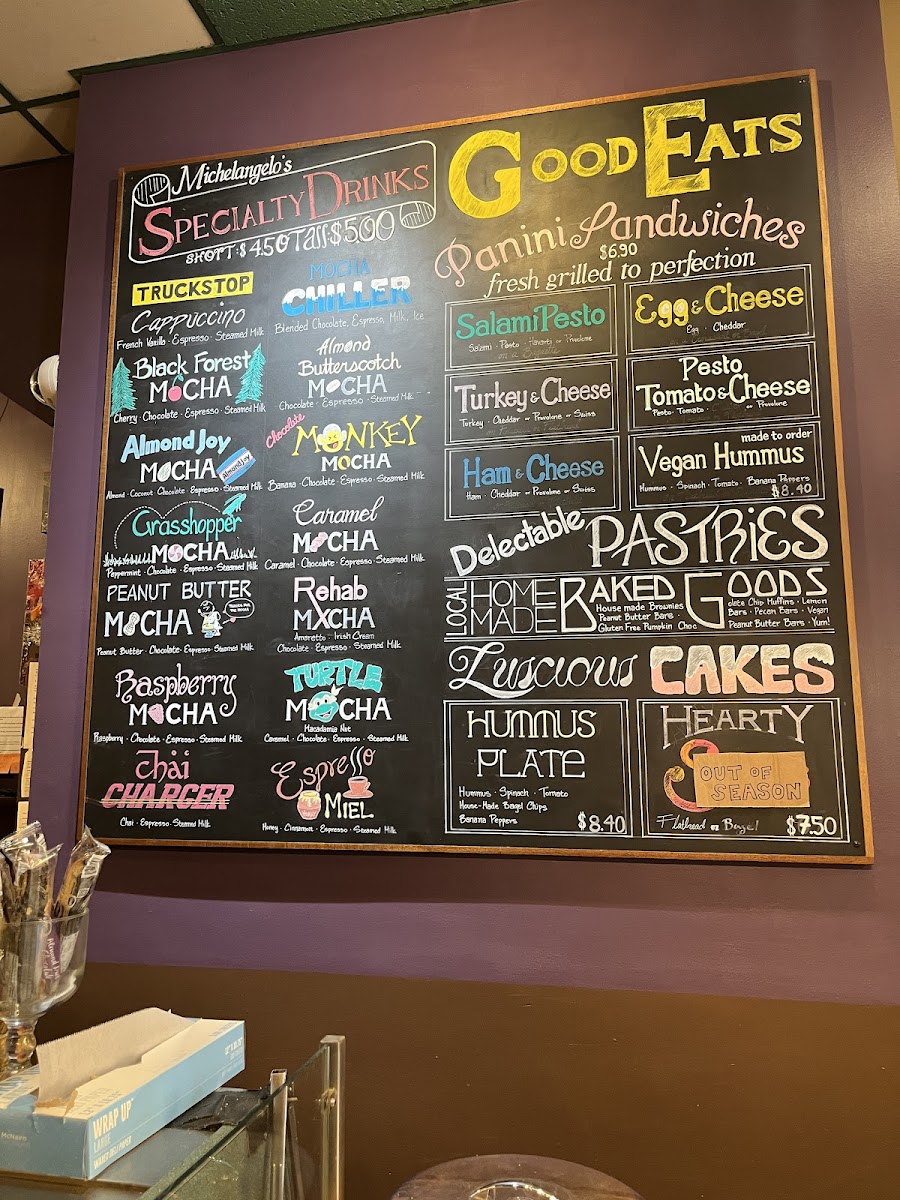 Michelangelo's
SPECIALTY DRINKS
SHORT $4.50 Tall $5.00
TRUCKSTOP
Cappuccino
French Vanilla · Espresso · Steamed Milk
Black Forest
MOCHA
Cherry · Chocolate · Espresso · Steamed Milk
Almond Joy
MOCHA
Almond Joy
Almond · Coconut · Chocolate · Espresso · Steamed Milk
Grasshopper
MOCHA
Peppermint · Chocolate · Espresso · Steamed Milk
PEANUT BUTTER
MOCHA
Peanut Butter · Chocolate · Espresso · Steamed Milk
Raspberry
MOCHA
Raspberry · Chocolate · Espresso · Steamed Milk
Chai
CHARGER
Chai · Espresso · Steamed Milk
MOCHA
CHILLER
Blended Chocolate, Espresso, Milk, Ice
Almond
Butterscotch
MOCHA
Chocolate · Espresso · Steamed Milk
Chocolate
MONKEY
MOCHA
Banana · Chocolate · Espresso · Steamed Milk
Caramel
MOCHA
Caramel · Chocolate · Espresso · Steamed Milk
Rehab
MXCHA
Amaretto · Irish Cream
Chocolate · Espresso · Steamed Milk
TURTLE
MOCHA
Macadamia Nut
Caramel · Chocolate · Espresso · Steamed Milk
Espresso
MIEL
Honey · Cinnamon · Espresso · Steamed Milk
GOOD EATS
Panini Sandwiches
$6.90
fresh grilled to perfection
Salami Pesto
Salami · Pesto · Havarti or Provolone
on a Baguette
Egg & Cheese
Egg · Cheddar
Turkey & Cheese
Turkey · Cheddar or Provolone or Swiss
Pesto
Tomato & Cheese
Pesto · Tomato · or Provolone
Ham & Cheese
Ham · Cheddar or Provolone or Swiss
made to order
Vegan Hummus
Hummus · Spinach · Tomato · Banana Peppers
$8.40
Delectable PASTRIES
LOCAL HOME MADE BAKED GOODS
House made Brownies
Peanut Butter Bars ·
Gluten Free Pumpkin Choc
olate Chip Muffins · Lemon
Bars · Pecan Bars · Vegan
Peanut Butter Bars · Yum!
Luscious CAKES
HUMMUS
PLATE
Hummus · Spinach · Tomato
House-Made Bagel Chips
Banana Peppers
$8.40
HEARTY
OUT OF
SEASON
Flatbread or Bagel $7.50
McNairn
WRAP UP
LARGE
WAXED DELI PAPER